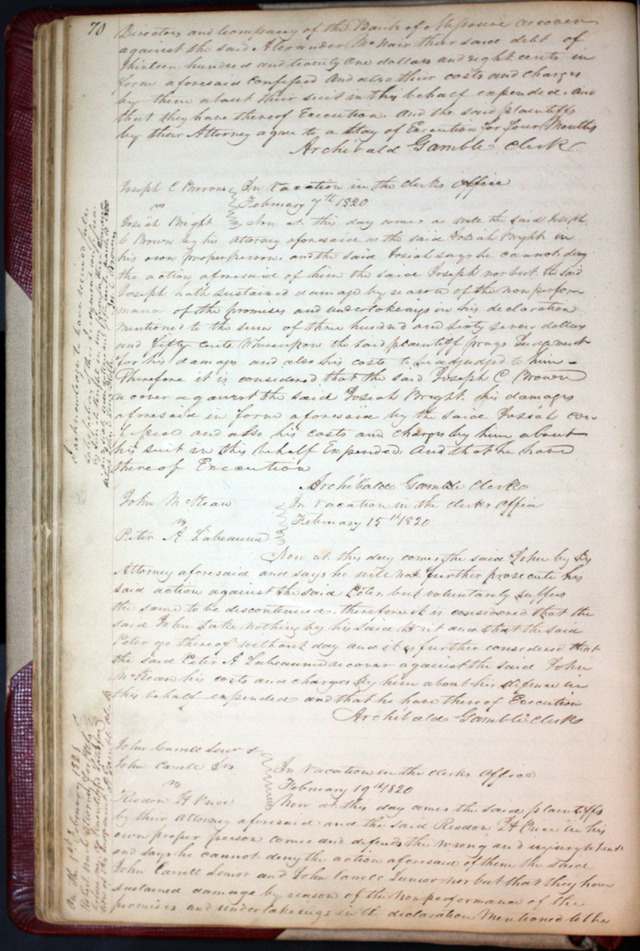 70
Directors and Company of the Bank of Missouri recover
against the said Alexander McNair their said debt of
Thirteen hundred and twenty one dollars and eight cents in
form aforesaid confessed And also their costs and charges
by them about their suit in this behalf expended. And
that they have thereof Execution. And the said plaintiffs
by their Attorney agree to a stay of Execution for four Months
Archibald Gamble Clerk
Joseph C Brown
vs
Josiah Bright
In Vacation in the Clerks Office
February 7th 1820
Now at this day comes as well the said Joseph
C Brown by his Attorney aforesaid as the said Josiah Bright in
his own proper person and the said Josiah says he cannot deny
the action aforesaid of him the said Joseph nor but the said
Joseph hath sustained damage by reason of the nonperfor-
mance of the promises and undertakings in his declaration
mentioned to the sum of three hundred and sixty seven dollars
and fifty cents Whereupon the said plaintiff prays Judgment
for his damages and also his costs to be adjudged to him-
Therefore it is considered that the said Joseph C Brown
recover against the said Josiah Bright his damages
aforesaid in form aforesaid by the said Josiah con-
fessed and also his costs and charges by him about
his suit in this behalf Expended And that he have
thereof Execution
Archibald Gamble Clerk
John McKean
vs
Peter A Labeaume
In Vacation in the Clerks Office
February 15th 1820
Now at this day comes the said John by his
Attorney aforesaid and says he will not further prosecute his
said action against the said Peter but voluntarily suffers
the same to be discontinued, therefore it is considered that the
said John take nothing by his said Writ and that the said
Peter go thereof without day and it is further considered that
the said Peter A Labeaume recover against the said John
McKean his costs and charges by him about his defence in
this behalf expended and that he have thereof Execution
Archibald Gamble Clerk
John Carrell Senr &
John Carrell Jr
vs
Risdon H Price
In Vacation in the Clerks Office
February 19th 1820
Now at this day comes the said plaintiffs
by their Attorney aforesaid and the said Risdon H Price in his
own proper person comes and defends the wrong and injury when
and says he cannot deny the action aforesaid of them the said
John Carrell Senior and John Carrell Junior nor but that they have
sustained damage by reason of the nonperformance of the
promises and undertakings in the declaration mentioned to the